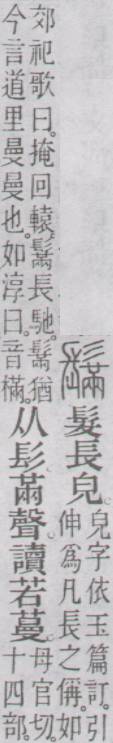 鬗
髮長皃。
皃字依玉篇訂。引
伸爲凡長之偁。如
郊祀歌曰。掩回轅。鬗長馳。鬗猶
今言道里曼曼也。如淳曰。音樠。
从髟㒼聲。讀若蔓。
母官切。
十四部。